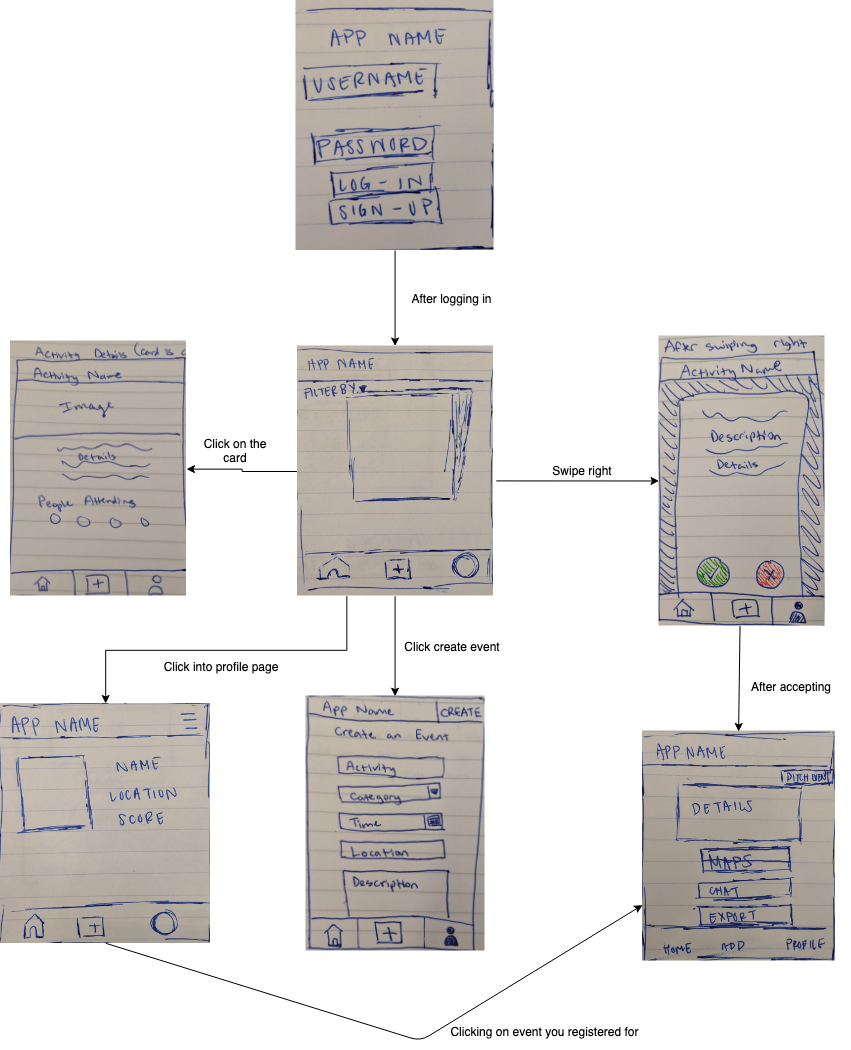 APP NAME
USERNAME
PASSWORD
LOG-IN
SIGN-UP
After logging in
Activity Details (card is c
Activity Name
Image
Details
People Attending
Click on the
card
APP NAME
FILTER BY
Swipe right
After swiping right
Activity Name
Description
Details
Click into profile page
Click create event
After accepting
APP NAME
NAME
LOCATION
SCORE
App Name
CREATE
Create an Event
Activity
Category
Time
Location
Description
APP NAME
DITCH EVENT
DETAILS
MAPS
CHAT
EXPORT
HOME ADD PROFILE
Clicking on event you registered for